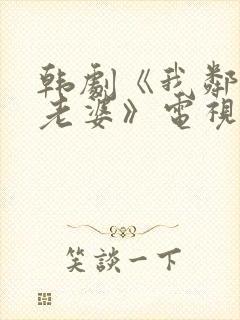 韩劇《我鄰
老婆》電視
笑談一下